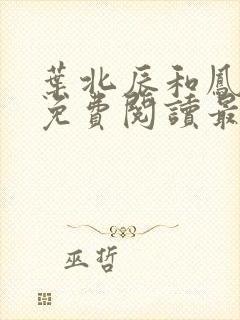 葉北辰和鳳
免費閱讀最
巫哲